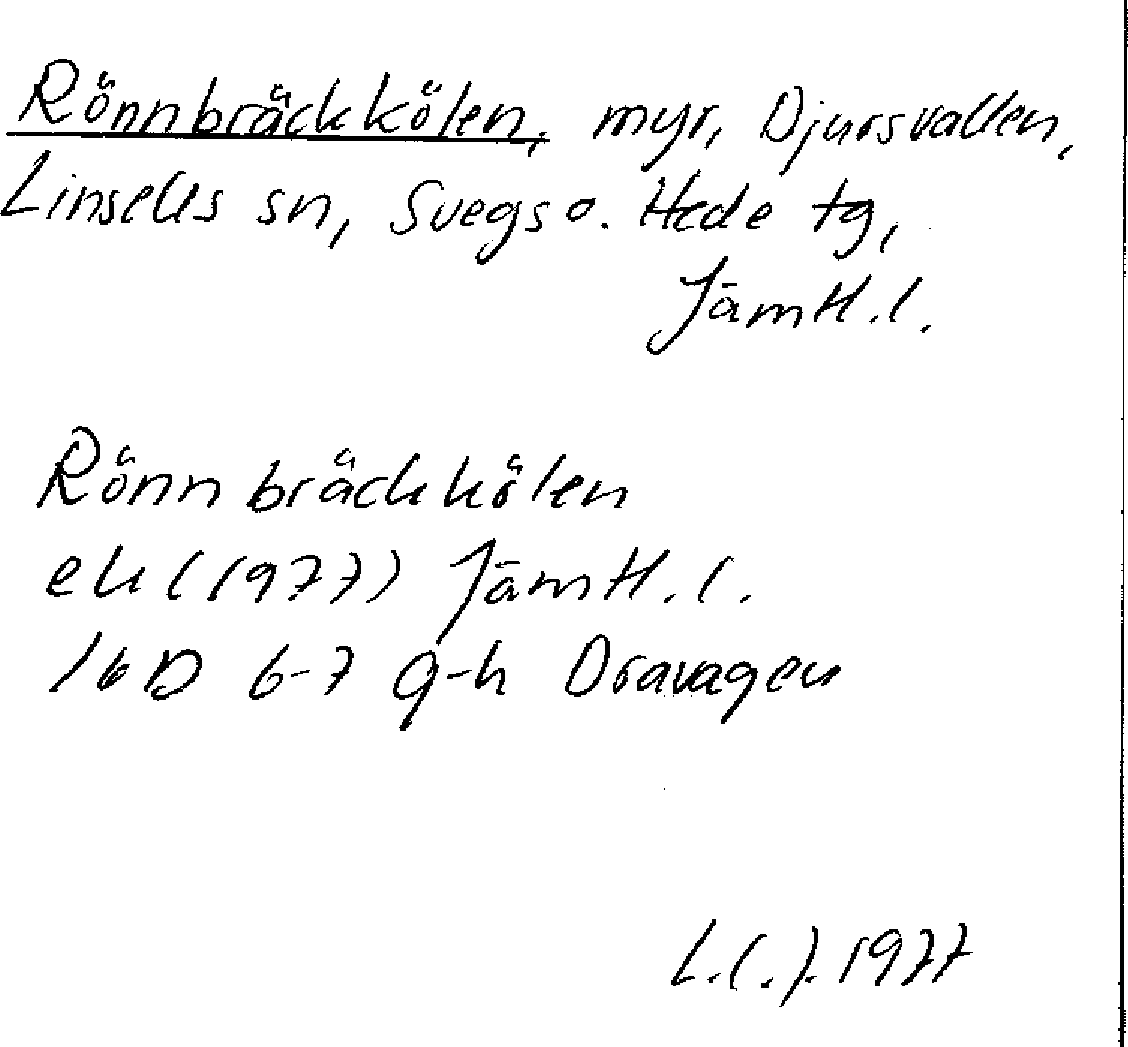 Rönnbräckkölen, myr, Djursvallen,
Linsells sn, Svegs o. Hede tg,
Jämtl.l.
Rönnbräckkölen
ek (1977) Jämtl.l.
16D 6-7 g-h Dravagen
1977